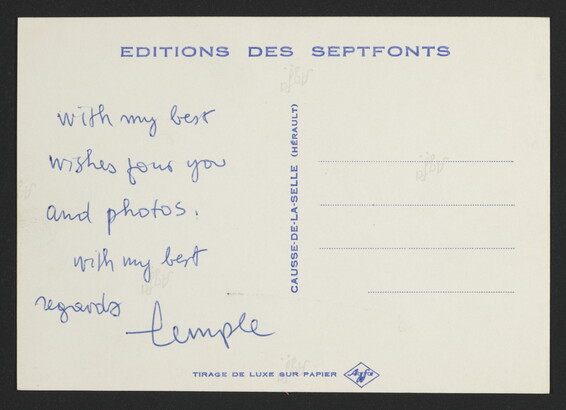 EDITIONS DES SEPTFONTS
with my best
wishes four you
and photos.
with my best
regards
temple
CAUSSE-DE-LA-SELLE (HÉRAULT)
TIRAGE DE LUXE SUR PAPIER Agfa